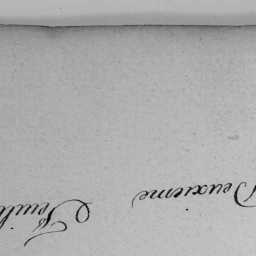 Deuxieme Feuil